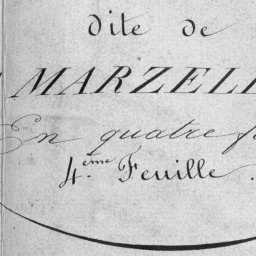 dite de
MARZELL
En quatre f
4.ème Feuille.